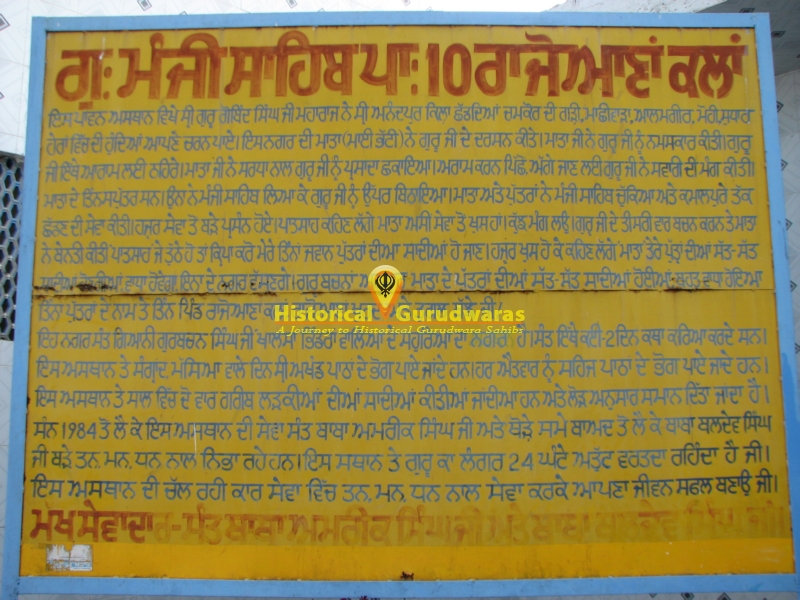 ਗੁ: ਮੰਜੀ ਸਾਹਿਬ ਪਾ: 10 ਰਾਜੋਆਣਾਂ ਕਲਾਂ
ਇਸ ਪਾਵਨ ਅਸਥਾਨ ਵਿਖੇ ਸ੍ਰੀ ਗੁਰੂ ਗੋਬਿੰਦ ਸਿੰਘ ਜੀ ਮਹਾਰਾਜ ਨੇ ਸ੍ਰੀ ਅਨੰਦਪੁਰ ਕਿਲਾ ਛੱਡਦਿਆਂ ਚਮਕੌਰ ਦੀ ਗੜੀ, ਮਾਛੀਵਾੜਾ, ਆਲਮਗੀਰ, ਮੋਹੀ, ਸੁਧਾਰ
ਹੇਰਾਂ ਵਿੱਚ ਦੀ ਹੁੰਦਿਆਂ ਆਪਣੇ ਚਰਨ ਪਾਏ। ਇਸ ਨਗਰ ਦੀ ਮਾਤਾ (ਮਾਈ ਭੱਟੀ) ਨੇ ਗੁਰੂ ਜੀ ਦੇ ਦਰਸਨ ਕੀਤੇ। ਮਾਤਾ ਜੀ ਨੇ ਗੁਰੂ ਜੀ ਨੂੰ ਨਮਸਕਾਰ ਕੀਤੀ। ਗੁਰੂ
ਜੀ ਇੱਥੇ ਆਰਾਮ ਲਈ ਠਹਿਰੇ। ਮਾਤਾ ਜੀ ਨੇ ਸਰਧਾ ਨਾਲ ਗੁਰੂ ਜੀ ਨੂੰ ਪ੍ਰਸਾਦਾ ਛਕਾਇਆ। ਅਰਾਮ ਕਰਨ ਪਿੱਛੋਂ, ਅੱਗੇ ਜਾਣ ਲਈ ਗੁਰੂ ਜੀ ਨੇ ਸਵਾਰੀ ਦੀ ਮੰਗ ਕੀਤੀ।
ਮਾਤਾ ਦੇ ਤਿੰਨ ਸਪੁੱਤਰ ਸਨ। ਉਨਾਂ ਨੇ ਮੰਜੀ ਸਾਹਿਬ ਲਿਆ ਕੇ ਗੁਰੂ ਜੀ ਨੂੰ ਉੱਪਰ ਬਿਠਾਇਆ। ਮਾਤਾ ਅਤੇ ਪੁੱਤਰਾਂ ਨੇ ਮੰਜੀ ਸਾਹਿਬ ਚੁੱਕਿਆ ਅਤੇ ਕਮਾਲਪੁਰੇ ਤੱਕ
ਛੱਡਣ ਦੀ ਸੇਵਾ ਕੀਤੀ। ਹਜ਼ੂਰ ਸੇਵਾ ਤੋਂ ਬੜੇ ਪ੍ਰਸੰਨ ਹੋਏ। ਪਾਤਸਾਹ ਕਹਿਣ ਲੱਗੇ ਮਾਤਾ ਅਸੀ ਸੇਵਾ ਤੋਂ ਖੁਸ ਹਾਂ। ਕੁੱਛ ਮੰਗ ਲਉ। ਗੁਰੂ ਜੀ ਦੇ ਤੀਸਰੀ ਵਾਰ ਬਚਨ ਕਰਨ ਤੇ ਮਾਤਾ
ਨੇ ਬੇਨਤੀ ਕੀਤੀ ਪਾਤਸਾਹ ਜੇ ਤੁੱਠੇ ਹੋ ਤਾਂ ਕ੍ਰਿਪਾ ਕਰੋ ਮੇਰੇ ਤਿੰਨਾਂ ਜਵਾਨ ਪੁੱਤਰਾਂ ਦੀਆ ਸਾਦੀਆਂ ਹੋ ਜਾਣ। ਹਜ਼ੂਰ ਖੁਸ ਹੋ ਕੇ ਕਹਿਣ ਲੱਗੇ ਮਾਤਾ ਤੇਰੇ ਪੁੱਤਾਂ ਦੀਆਂ ਸੱਤ-ਸੱਤ
ਵਾਧਾ ਹੋਵੇਗਾ ਇਨਾਂ ਦੇ ਨਗਰ ਵੱਸਣਗੇ। ਗੁਰੂ ਬਚਨਾਂ ਮਾਤਾ ਦੇ ਪੁੱਤਰਾਂ ਦੀਆਂ ਸੱਤ-ਸੱਤ ਸਾਦੀਆਂ ਹੋਈਆਂ ਬਹੁਤ ਵਾਧਾ ਹੋਇਆ
ਤਿੰਨਾਂ ਪੁੱਤਰਾਂ ਦੇ ਨਾਮ ਤੇ ਤਿੰਨ ਪਿੰਡ ਰਾਜੋਆਣਾ
Historical Gurudwaras
A Journey to Historical Gurudwara Sahibs
ਇਹ ਨਗਰ ਸੰਤ ਗਿਆਨੀ ਗੁਰਬਚਨ ਸਿੰਘ ਜੀ ਖਾਲਸਾ ਭਿੰਡਰਾਂ ਵਾਲਿਆਂ ਦੇ ਸਹੁਰਿਆਂ ਦਾ ਨਗਰ ਹੈ। ਸੰਤ ਇੱਥੇ ਕਈ-2 ਦਿਨ ਕਥਾ ਕਰਿਆ ਕਰਦੇ ਸਨ।
ਇਸ ਅਸਥਾਨ ਤੇ ਸੰਗ੍ਰਾਂਦ, ਮੱਸਿਆ ਵਾਲੇ ਦਿਨ ਸ੍ਰੀ ਅਖੰਡ ਪਾਠਾਂ ਦੇ ਭੋਗ ਪਾਏ ਜਾਂਦੇ ਹਨ। ਹਰ ਐਤਵਾਰ ਨੂੰ ਸਹਿਜ ਪਾਠਾਂ ਦੇ ਭੋਗ ਪਾਏ ਜਾਂਦੇ ਹਨ।
ਇਸ ਅਸਥਾਨ ਤੇ ਸਾਲ ਵਿੱਚ ਦੋ ਵਾਰ ਗਰੀਬ ਲੜਕੀਆਂ ਦੀਆਂ ਸਾਦੀਆਂ ਕੀਤੀਆਂ ਜਾਂਦੀਆਂ ਹਨ ਅਤੇ ਲੋੜ ਅਨੁਸਾਰ ਸਮਾਨ ਦਿੱਤਾ ਜਾਂਦਾ ਹੈ।
ਸੰਨ 1984 ਤੋਂ ਲੈ ਕੇ ਇਸ ਅਸਥਾਨ ਦੀ ਸੇਵਾ ਸੰਤ ਬਾਬਾ ਅਮਰੀਕ ਸਿੰਘ ਜੀ ਅਤੇ ਥੋੜੇ ਸਮੇਂ ਬਾਅਦ ਤੋਂ ਲੈ ਕੇ ਬਾਬਾ ਬਲਦੇਵ ਸਿੰਘ
ਜੀ ਬੜੇ ਤਨ, ਮਨ, ਧਨ ਨਾਲ ਨਿਭਾ ਰਹੇ ਹਨ। ਇਸ ਸਥਾਨ ਤੇ ਗੁਰੂ ਕਾ ਲੰਗਰ 24 ਘੰਟੇ ਅਤੁੱਟ ਵਰਤਦਾ ਰਹਿੰਦਾ ਹੈ ਜੀ।
ਇਸ ਅਸਥਾਨ ਦੀ ਚੱਲ ਰਹੀ ਕਾਰ ਸੇਵਾ ਵਿੱਚ ਤਨ, ਮਨ, ਧਨ ਨਾਲ ਸੇਵਾ ਕਰਕੇ ਆਪਣਾ ਜੀਵਨ ਸਫਲ ਬਣਾਉ ਜੀ।
ਮੁੱਖ ਸੇਵਾਦਾਰ-ਸੰਤ ਬਾਬਾ ਅਮਰੀਕ ਸਿੰਘ ਜੀ ਅਤੇ ਬਾਬਾ ਬਲਦੇਵ ਸਿੰਘ ਜੀ।